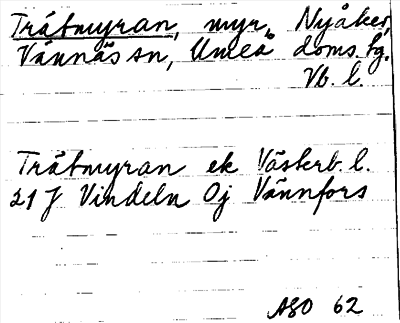 Tråtmyran, myr, Nyåker,
Vännäs sn, Umeå doms. tg.
Vb. l.
Tråtmyran ek Västerb. l.
21 J Vindeln 0j Vännfors
ASO 62